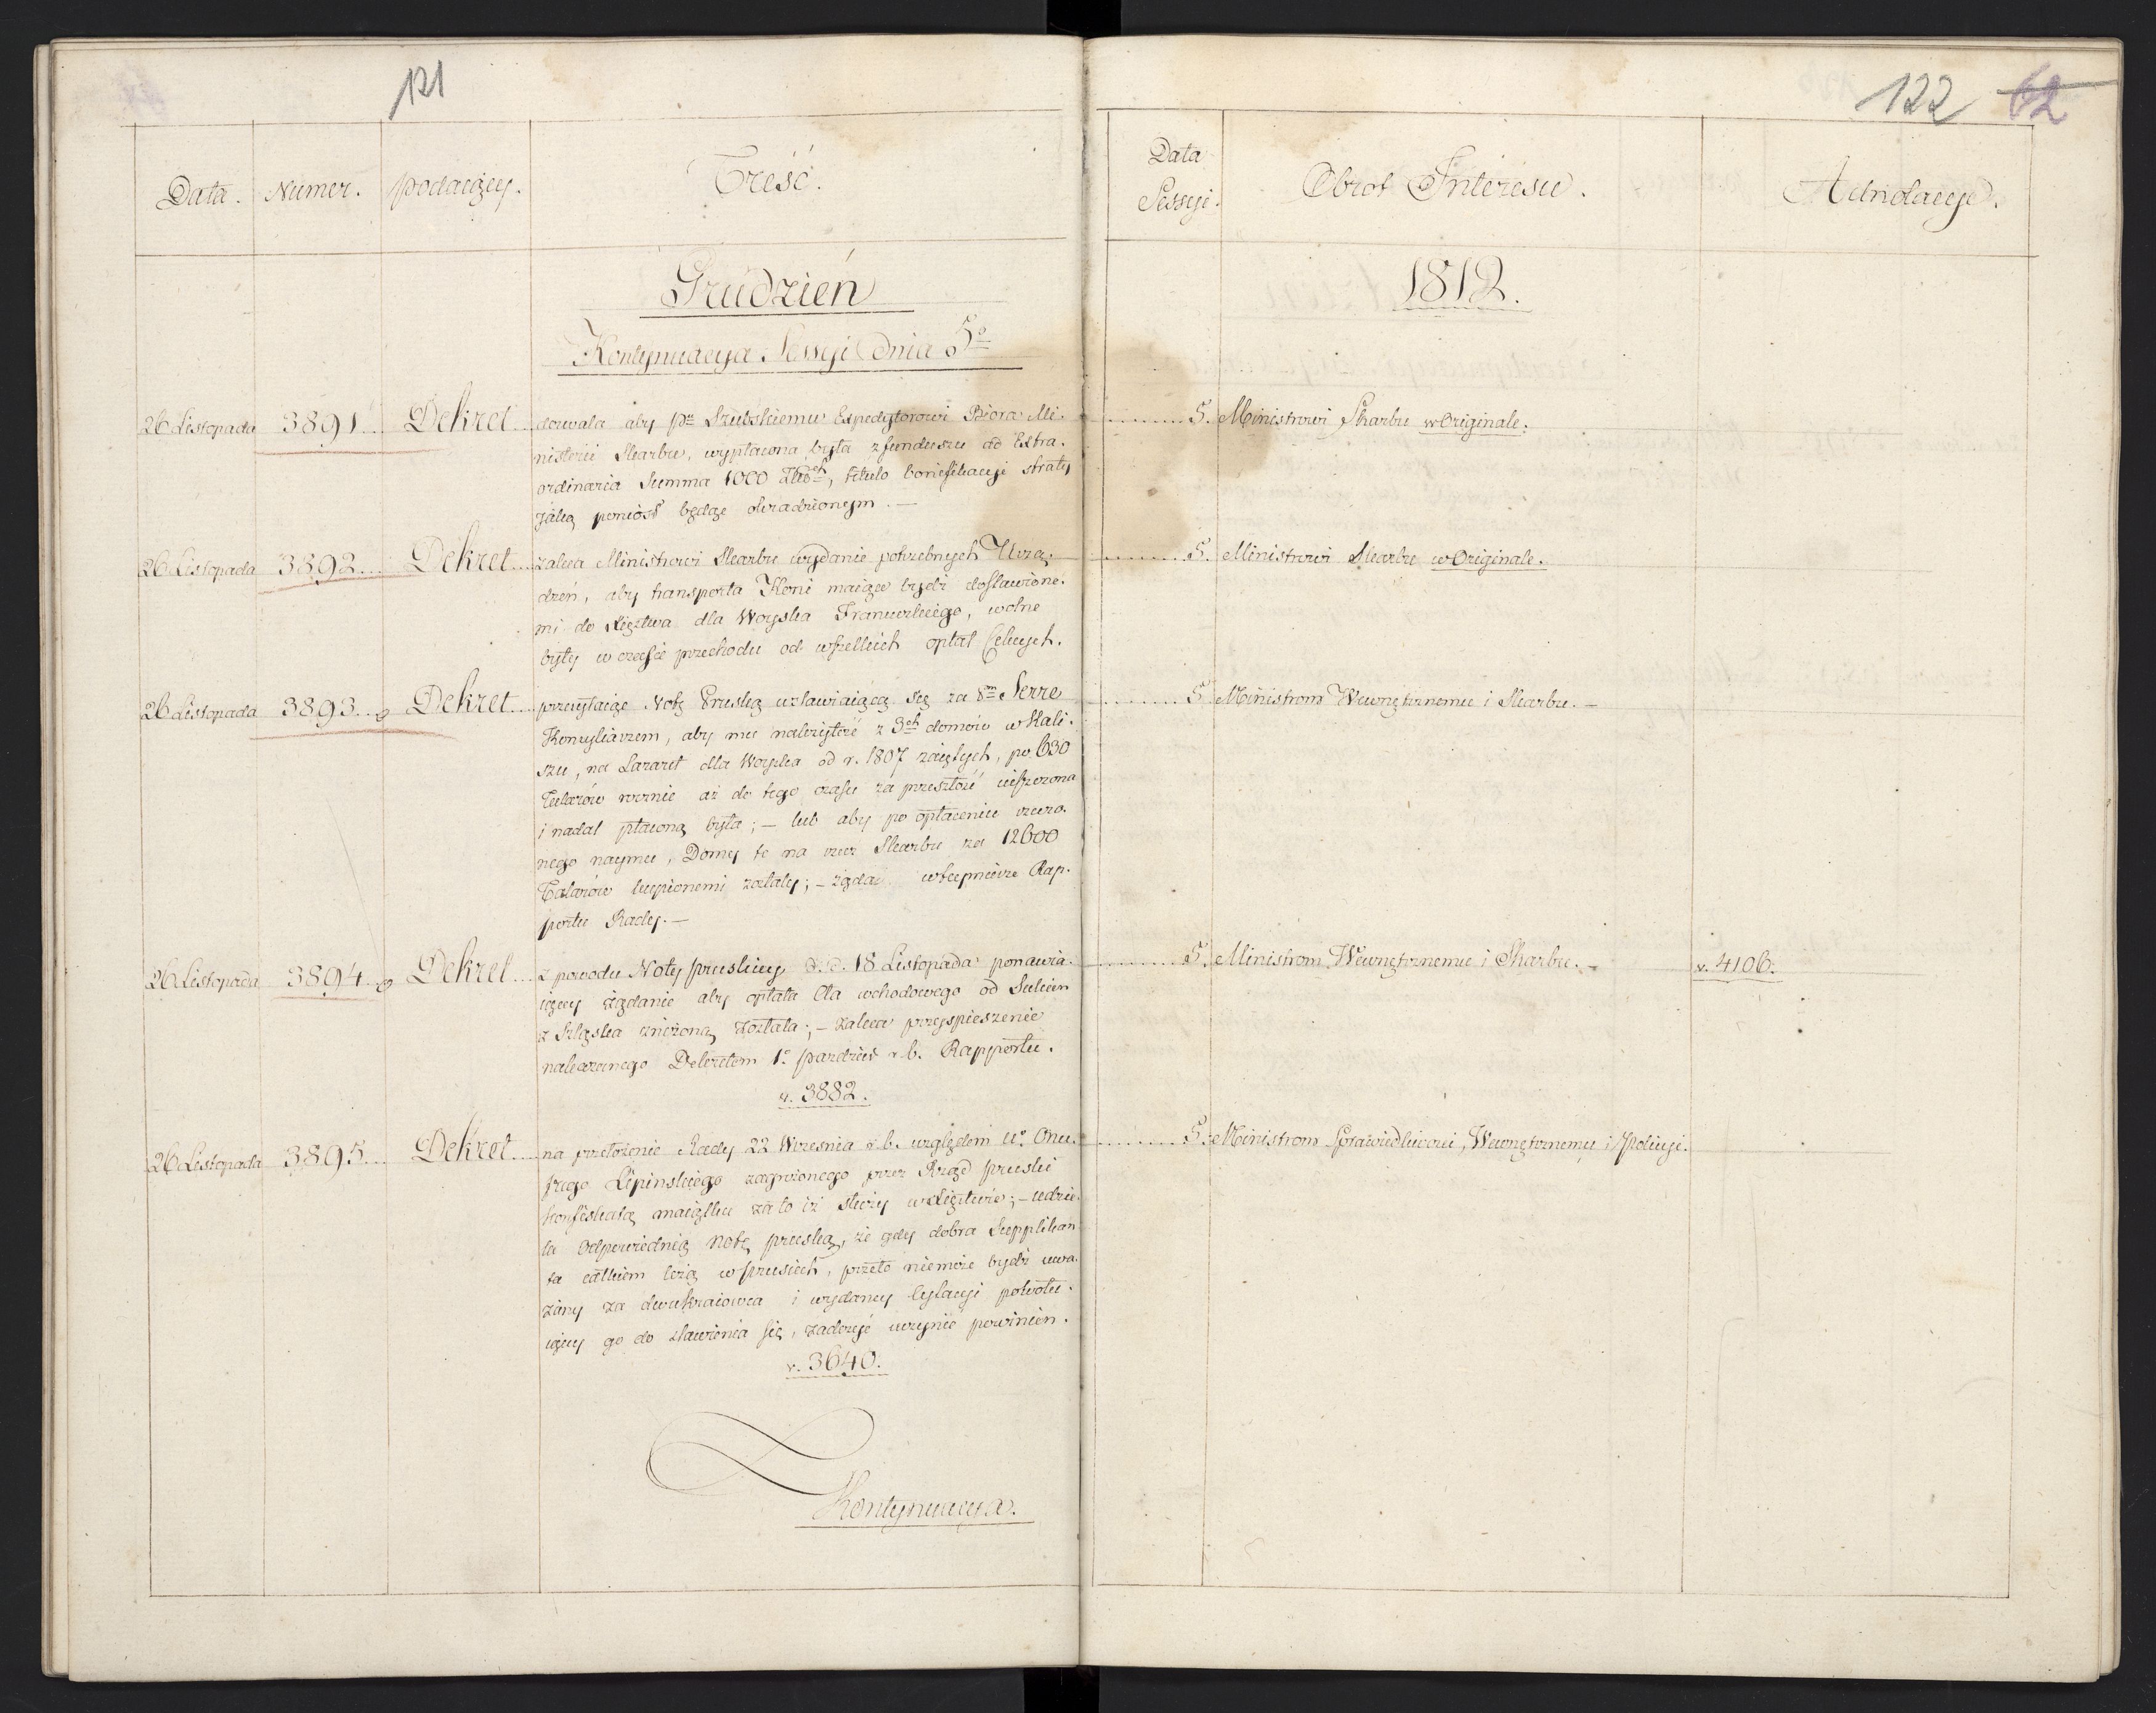 121
Data. Numer. podaiący. Treść.
Grudzień
Kontynuacya Sessyi Dnia 5º
26 Listopada 3891 Dekret dowala aby Pu Szubskiemu Expedytorowi Biora Mi-
nisterii Skarbu, wypłacona była z funduszu ad Extra-
ordinaria Summa 1000 titulo bonifikacyi straty
jaką poniósł będąc okradzionym. —
26 Listopada 3892 Dekret zaleca Ministrowi Skarbu wydanie potrzebnych Urzą-
dzeń, aby transporta Koni maiące bydź dostawione-
mi do Xięztwa dla Woyska Francuzkiego, wolne
były w czasie przechodu od wszelkich opłat Celnych.
26 Listopada 3893 Dekret przesyłaiąc Notę Pruską wstawiaiącą się za Serre
Konsyliarzem, aby mu należytość z 3ch domów w Kali-
szu, na Lazaret dla Woyska od r. 1807 zaiętych, po 630
Talarów rocznie aż do tego czasu za przeszłość uiszczona
i nadal płaconą była; — lub aby po opłaceniu rzeczo-
nego naymu, Domy te na rzecz Skarbu za 12600
Talarów kupionemi zostały; — żąda w tey mierze Rap-
portu Rady. —
26 Listopada 3894 Dekret z powodu Noty pruskiey d. d. 18 Listopada ponawia-
iącey żądanie aby opłata Cła wchodowego od Sukien
z Szląska zniżoną została; — zaleca przyspieszenie
nakazanego Dekretem 1º paździer r. b. Rapportu.
v. 3882.
26 Listopada 3895 Dekret na przełożenie Rady 22 Września r. b. względem Uº Onu-
frego Lipinskiego zagrożonego przez Rząd pruski
konfiskatą maiątku za to iż służy w Xięztwie; — udzie-
la Odpowiednią Notę pruską, że gdy dobra Supplikan-
ta całkiem leżą w prusiech, przeto niemoże bydź uwa-
żany za dwukraiowca i wydaney Cytacyi powołu-
iącey go do stawienia się, zadosyć uczynić powinien.
v. 3640.
Kontynuacya.
122 62
Data Sessyi. Obrot Interesu. Adnotacye.
1812.
5. Ministrowi Skarbu w Originale.
5. Ministrowi Skarbu w Originale.
5. Ministrom Wewnętrznemu i Skarbu. —
5. Ministrom Wewnętrznemu i Skarbu. — v. 4106.
5. Ministrom Sprawiedliwości, Wewnętrznemu i Policyi.